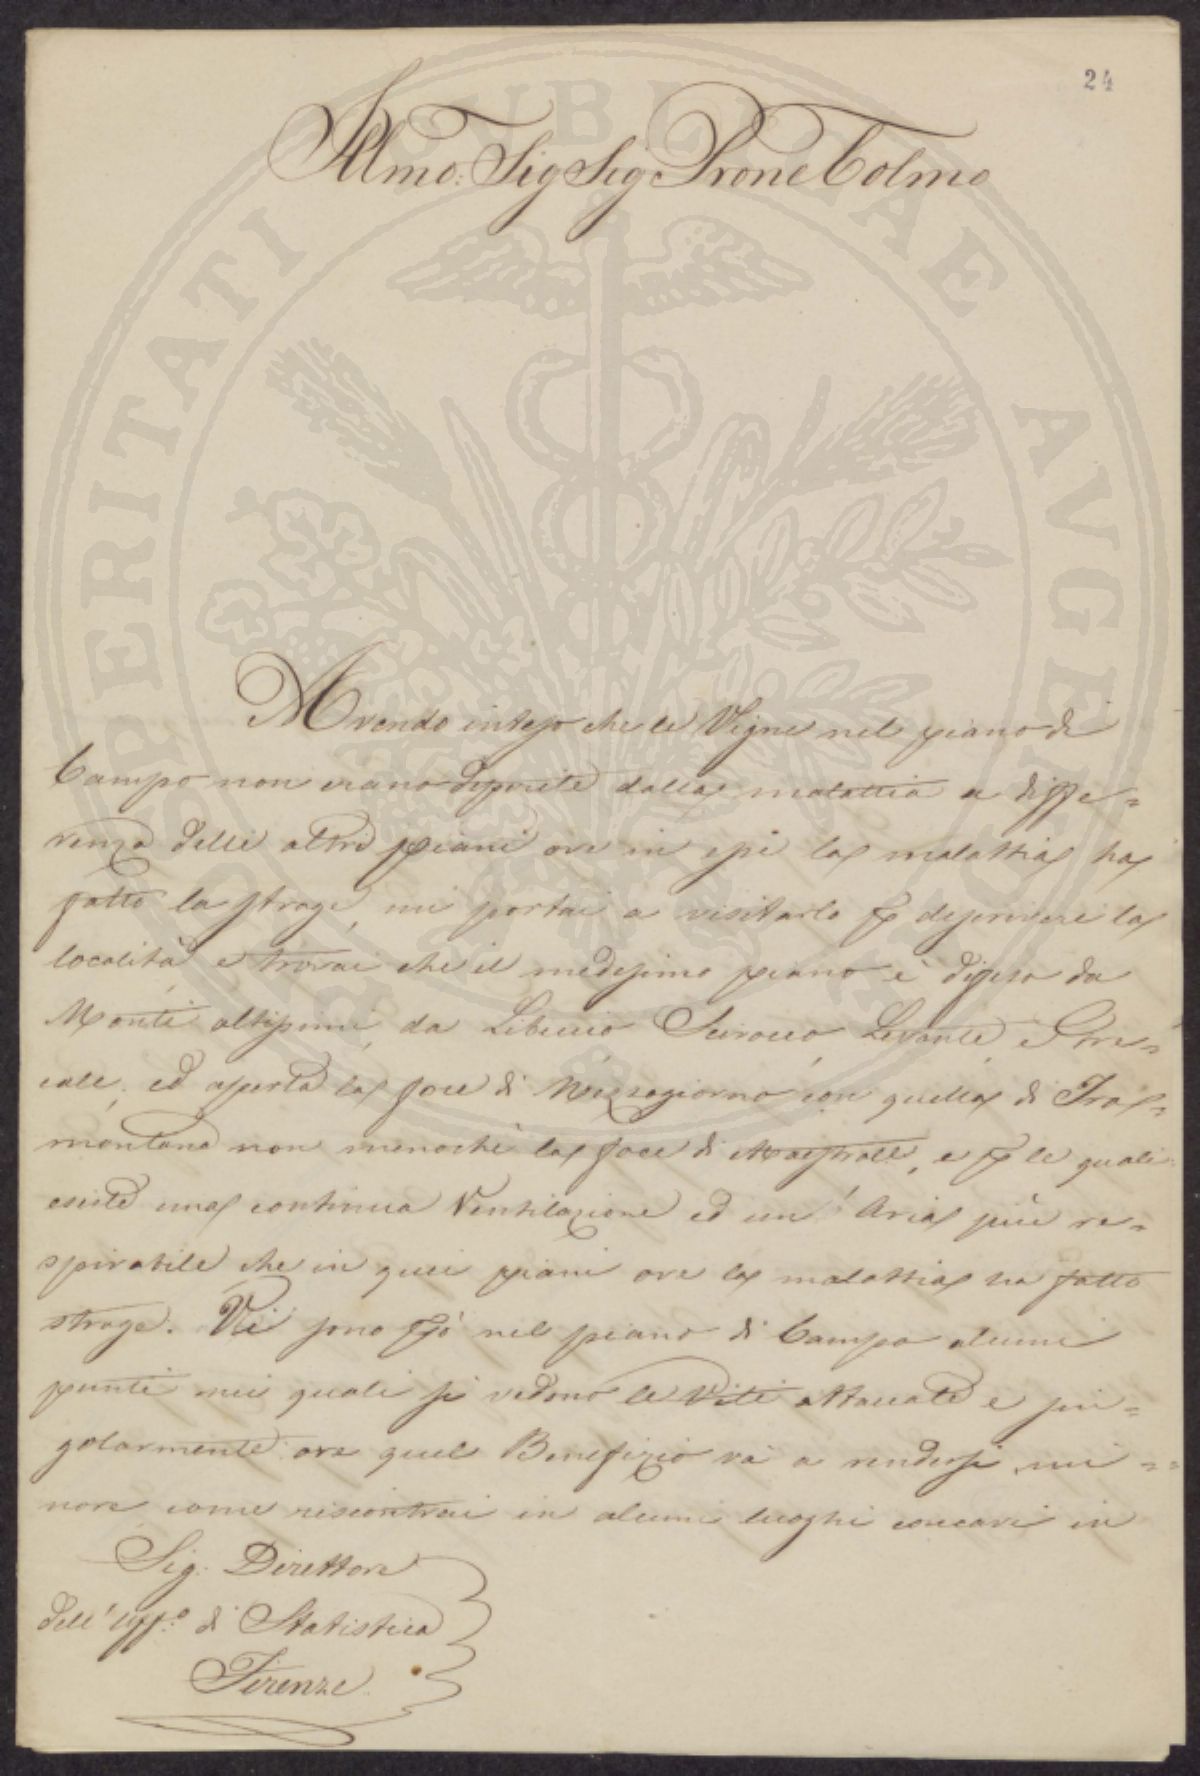 24
Illmo: Sig Sig Prone Colmo
Avendo inteso che le Vigne nel piano di
Campo non erano deperite dalla malattia a diffe=
renza delli altri piani ove in essi la malattia ha
fatto la strage, mi portai a visitarlo p descrivere la
località e trovai che il medesimo piano è difeso da
Monti altissimi, da Libeccio Scirocco, Levante, e Gre=
cale, ed aperta la foce di Mezzogiorno con quella di Tra=
montana non menochè la foce di Maestrale, e p le quali
esiste una continua Ventilazione ed un' Aria più re=
spirabile che in quei piani ove la malattia ha fatto
strage. Vi sono pò nel piano di Campo alcuni
punti nei quali si vedono le Viti attaccate e sin=
golarmente ove quel Benefizio va a rendersi mi=
nore come riscontrai in alcuni luoghi concavi in
Sig. Direttore
dell' Uff.o di Statistica
Firenze
PROSPERITATI PUBLICAE AVGENDAE